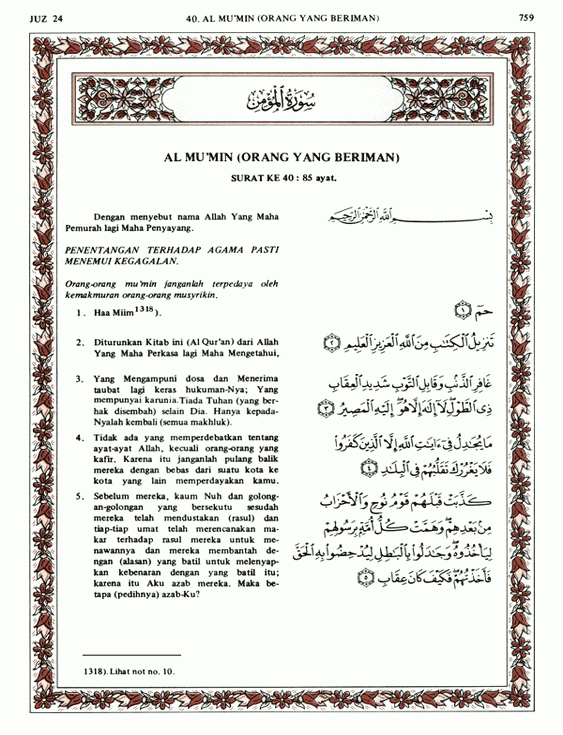 JUZ 24
40. AL MU'MIN (ORANG YANG BERIMAN)
759
سُورَةُ الْمُؤْمِن
AL MU'MIN (ORANG YANG BERIMAN)
SURAT KE 40 : 85 ayat.
Dengan menyebut nama Allah Yang Maha
Pemurah lagi Maha Penyayang.
بِسْمِ اللَّهِ الرَّحْمَٰنِ الرَّحِيمِ
PENENTANGAN TERHADAP AGAMA PASTI
MENEMUI KEGAGALAN.
Orang-orang mu'min janganlah terpedaya oleh
kemakmuran orang-orang musyrikin.
1. Haa Miim1318).
حمٓ ١
2. Diturunkan Kitab ini (Al Qur'an) dari Allah
Yang Maha Perkasa lagi Maha Mengetahui,
تَنزِيلُ الْكِتَٰبِ مِنَ اللَّهِ الْعَزِيزِ الْعَلِيمِ ٢
3. Yang Mengampuni dosa dan Menerima
taubat lagi keras hukuman-Nya; Yang
mempunyai karunia.Tiada Tuhan (yang ber-
hak disembah) selain Dia. Hanya kepada-
Nyalah kembali (semua makhluk).
غَافِرِ الذَّنۢبِ وَقَابِلِ التَّوْبِ شَدِيدِ الْعِقَابِ
ذِى الطَّوْلِ لَآ إِلَٰهَ إِلَّا هُوَ إِلَيْهِ الْمَصِيرُ ٣
4. Tidak ada yang memperdebatkan tentang
ayat-ayat Allah, kecuali orang-orang yang
kafir. Karena itu janganlah pulang balik
mereka dengan bebas dari suatu kota ke
kota yang lain memperdayakan kamu.
مَا يُجَٰدِلُ فِىٓ ءَايَٰتِ اللَّهِ إِلَّا الَّذِينَ كَفَرُوا
فَلَا يَغْرُرْكَ تَقَلُّبُهُمْ فِى الْبِلَٰدِ ٤
5. Sebelum mereka, kaum Nuh dan golong-
an-golongan yang bersekutu sesudah
mereka telah mendustakan (rasul) dan
tiap-tiap umat telah merencanakan ma-
kar terhadap rasul mereka untuk me-
nawannya dan mereka membantah de-
ngan (alasan) yang batil untuk melenyap-
kan kebenaran dengan yang batil itu;
karena itu Aku azab mereka. Maka be-
tapa (pedihnya) azab-Ku?
كَذَّبَتْ قَبْلَهُمْ قَوْمُ نُوحٍ وَالْأَحْزَابُ
مِنۢ بَعْدِهِمْ وَهَمَّتْ كُلُّ أُمَّةٍۭ بِرَسُولِهِمْ
لِيَأْخُذُوهُ وَجَٰدَلُوا بِالْبَٰطِلِ لِيُدْحِضُوا بِهِ الْحَقَّ
فَأَخَذْتُهُمْ فَكَيْفَ كَانَ عِقَابِ ٥
1318). Lihat not no. 10.